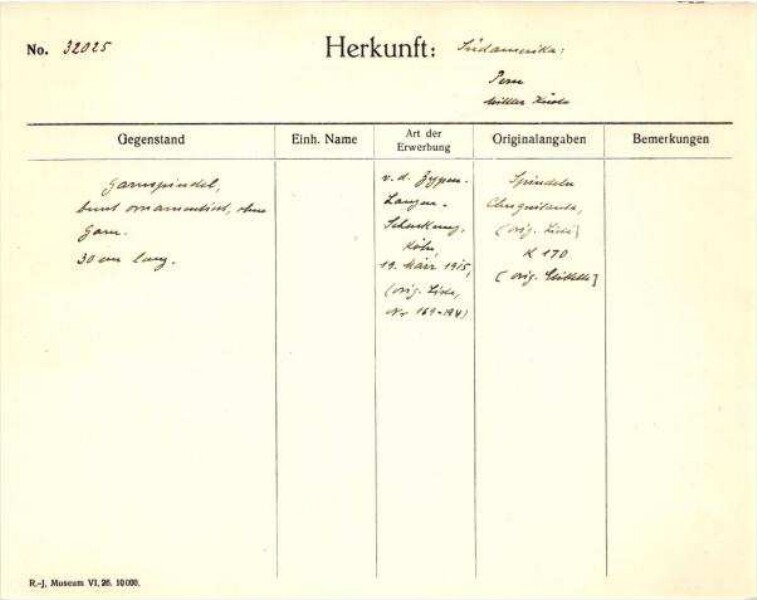 No. 32025
Herkunft: Südamerika:
Peru
Mittlere Küste
Gegenstand
Einh. Name
Art der Erwerbung
Originalangaben
Bemerkungen
Garnspindel,
bunt ornamentiert, ohne
Garn.
30 cm lang.
v. d. Zypen-
Langen-
Schenkung,
Köln,
19. März 1915,
(orig. Liste,
Nr 169-194)
Spindeln
(orig. Liste)
K 170
(orig.
R.-J. Museum VI, 26. 10000.